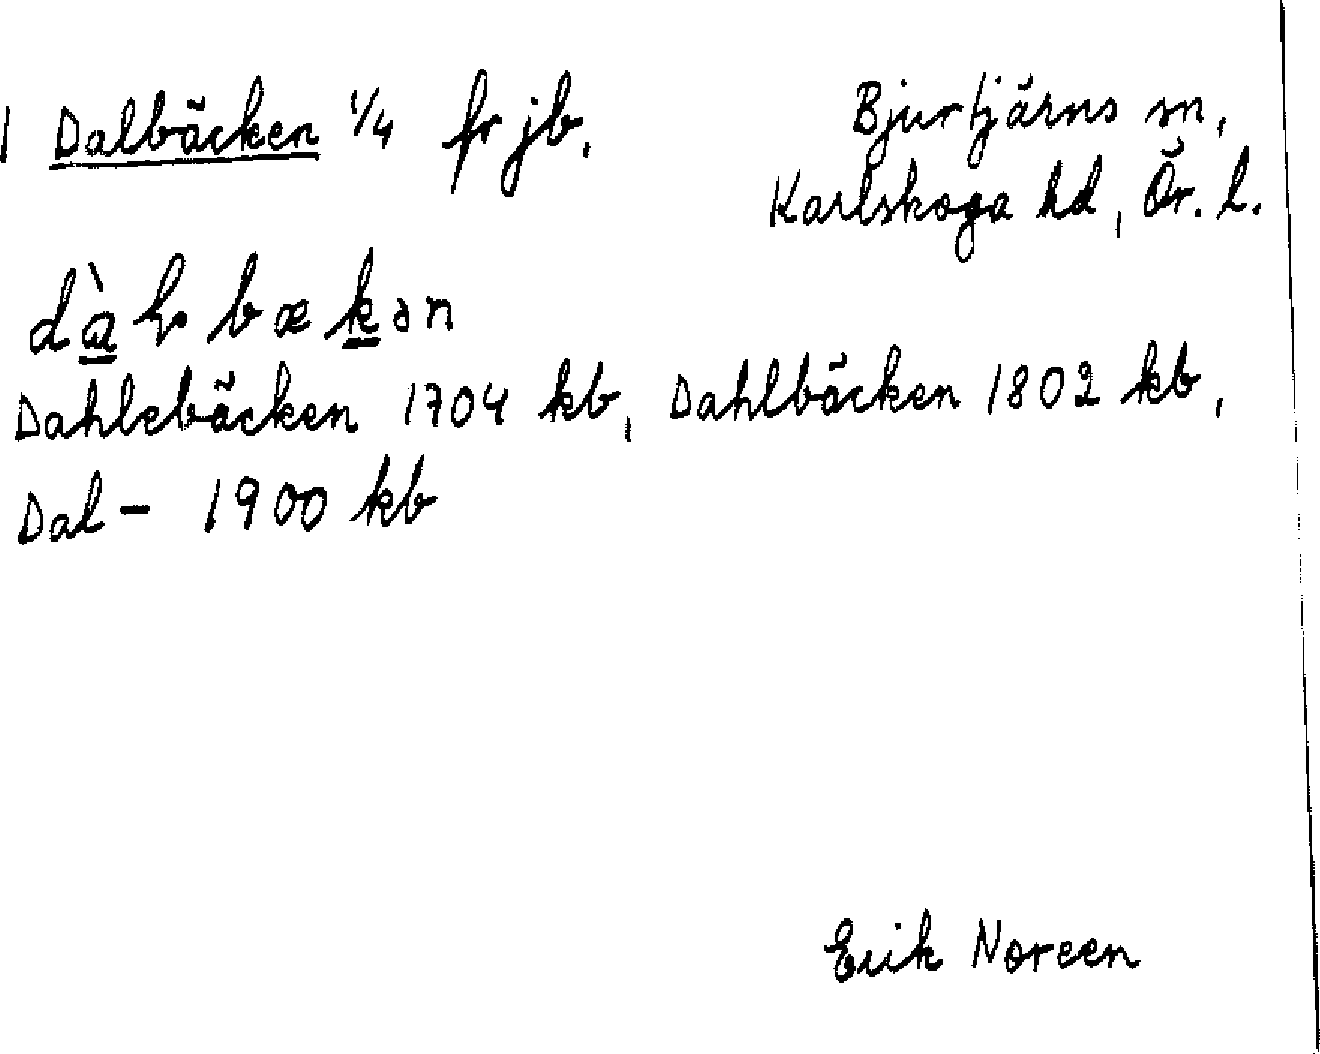 1 Dalbäcken 1/4 fr jb.
Bjurtjärns sn,
Karlskoga hd, Ör. l.
Dahlebäcken 1704 kb, Dahlbäcken 1802 kb,
Dal- 1900 kb
Erik Noreen